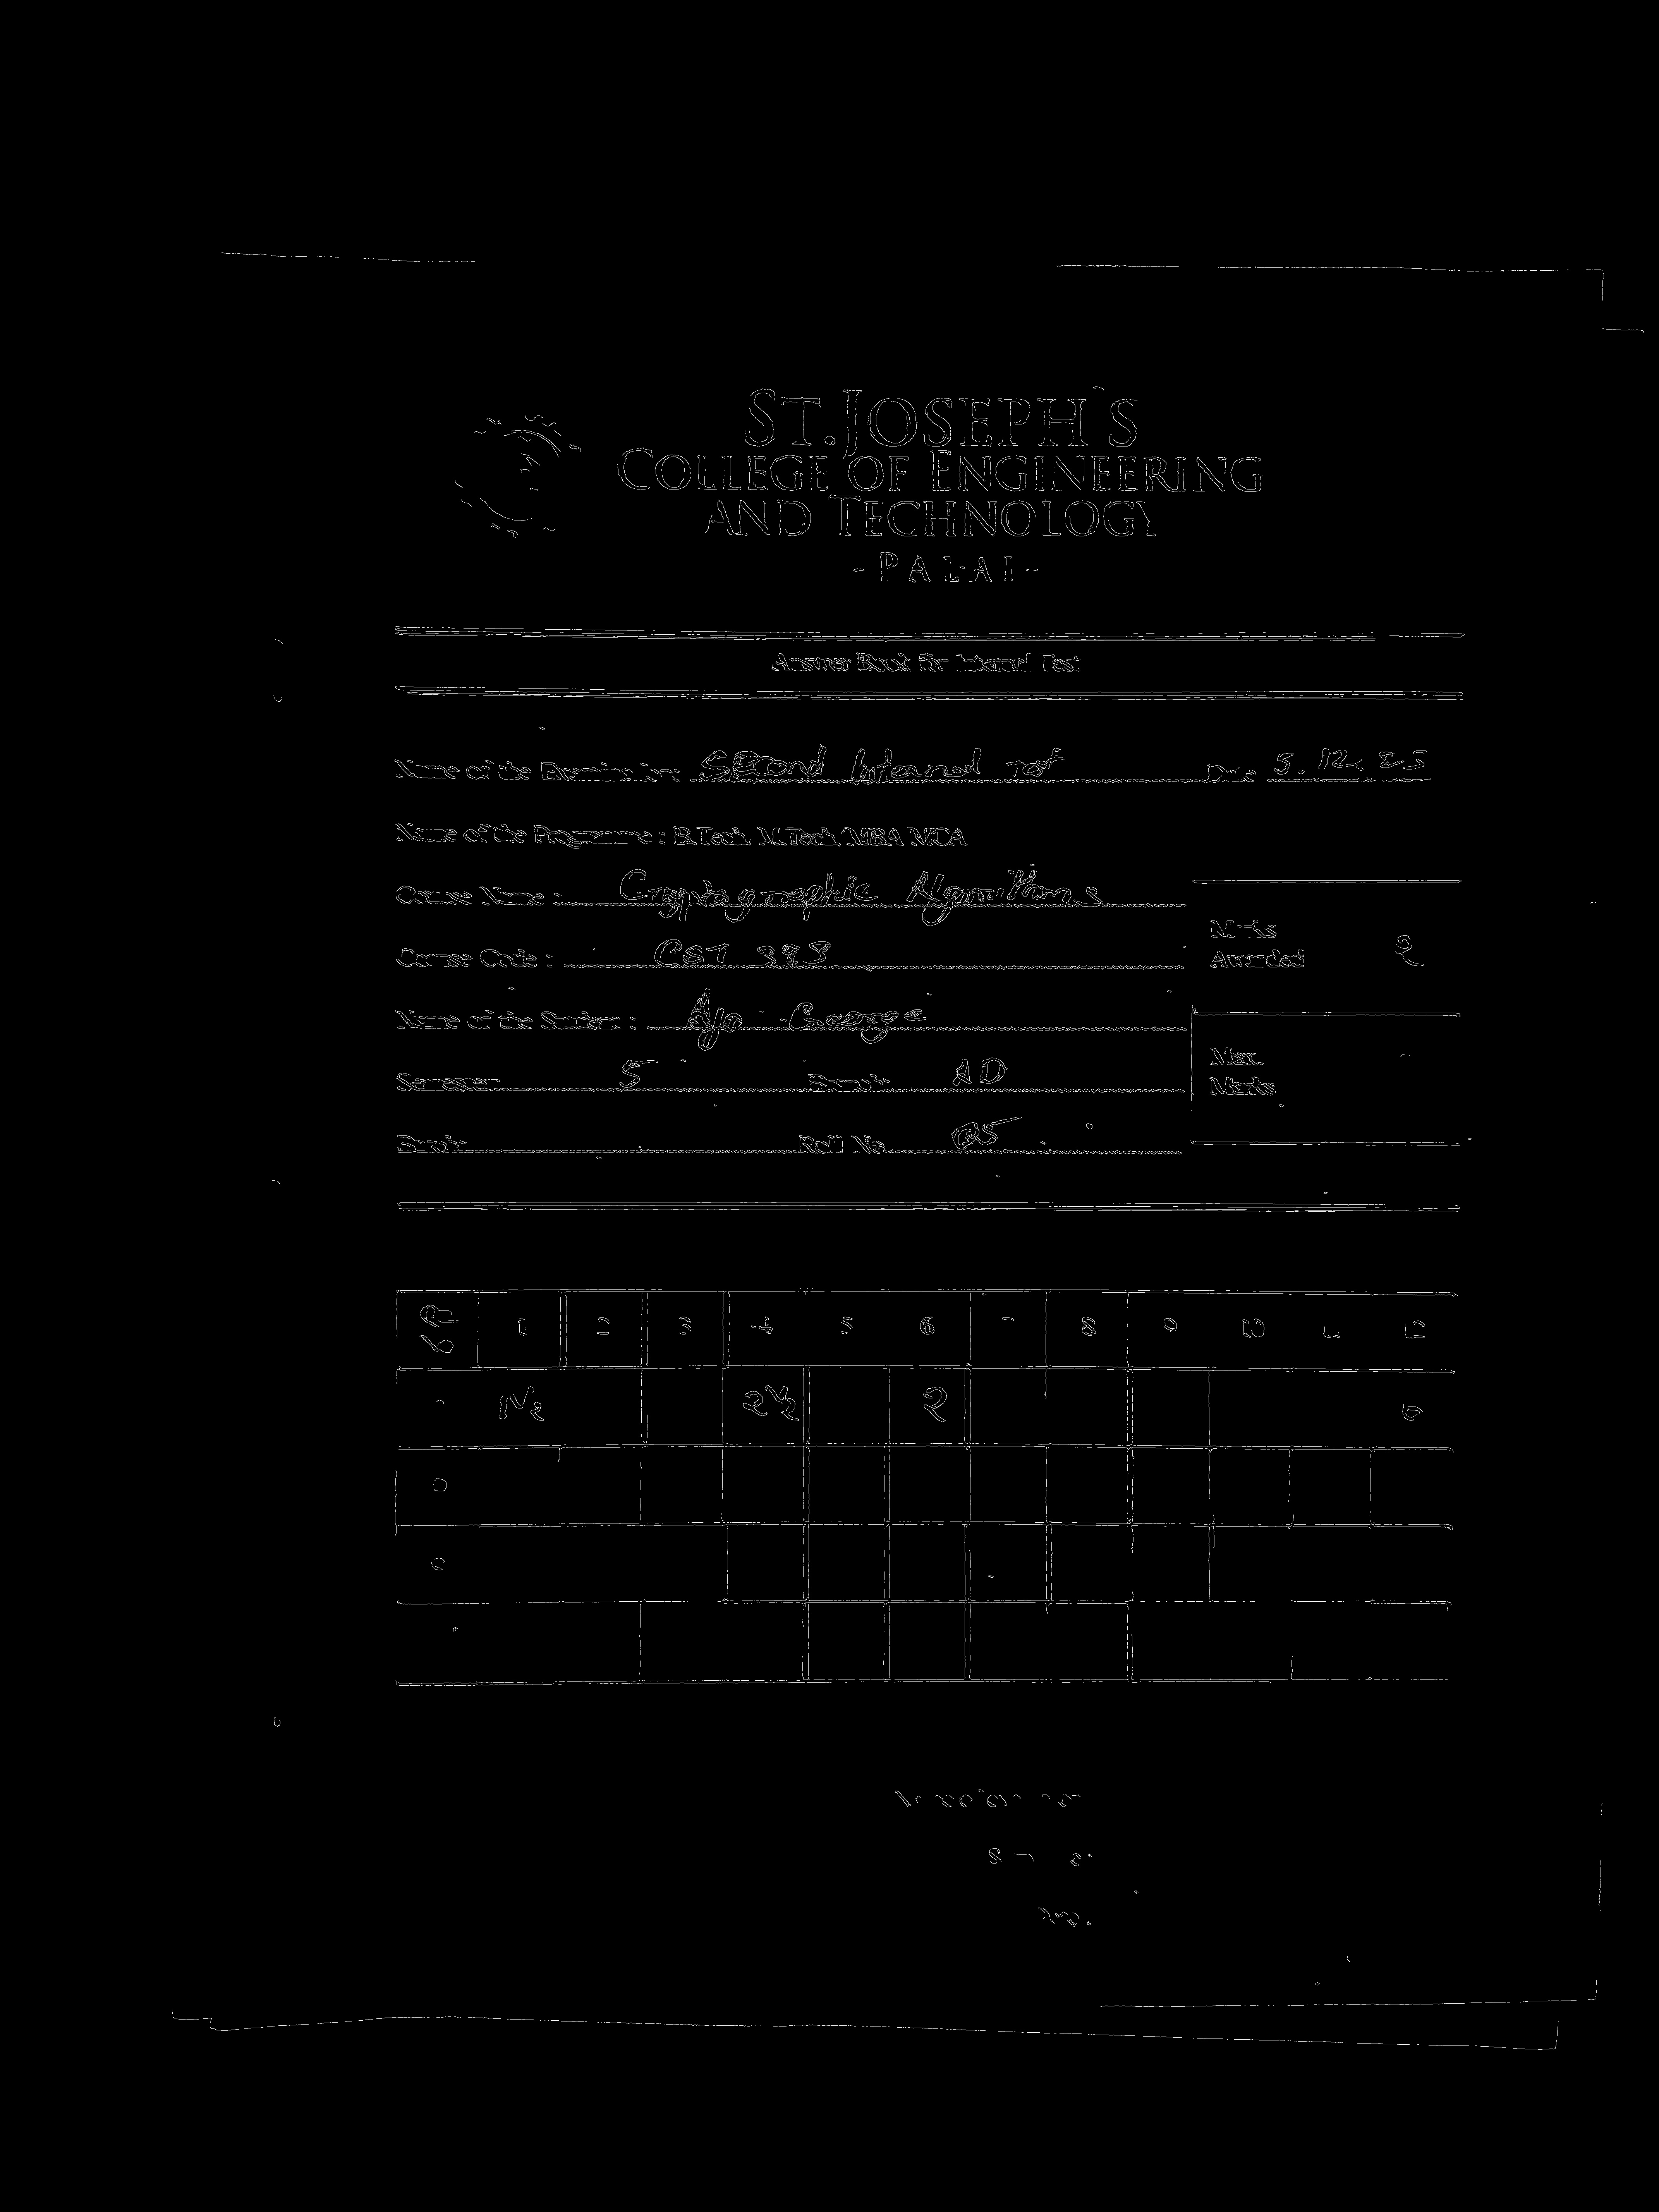 ST. JOSEPH'S
COLLEGE OF ENGINEERING
AND TECHNOLOGY
- PALAI -
Answer Book for Internal Test
Name of the Examination: Second Internal Test Date 5.12.25
Name of the Programme : B.Tech M.Tech MBA MCA
Course Name : Cryptographic Algorithms
Course Code : CST 393
Marks Awarded
Name of the Student : Ajo George
Max. Marks
Semester 5 Branch AD
Batch Roll No. 05
1 2 3 4 5 6 7 8 9 10 11 12
2½ 2